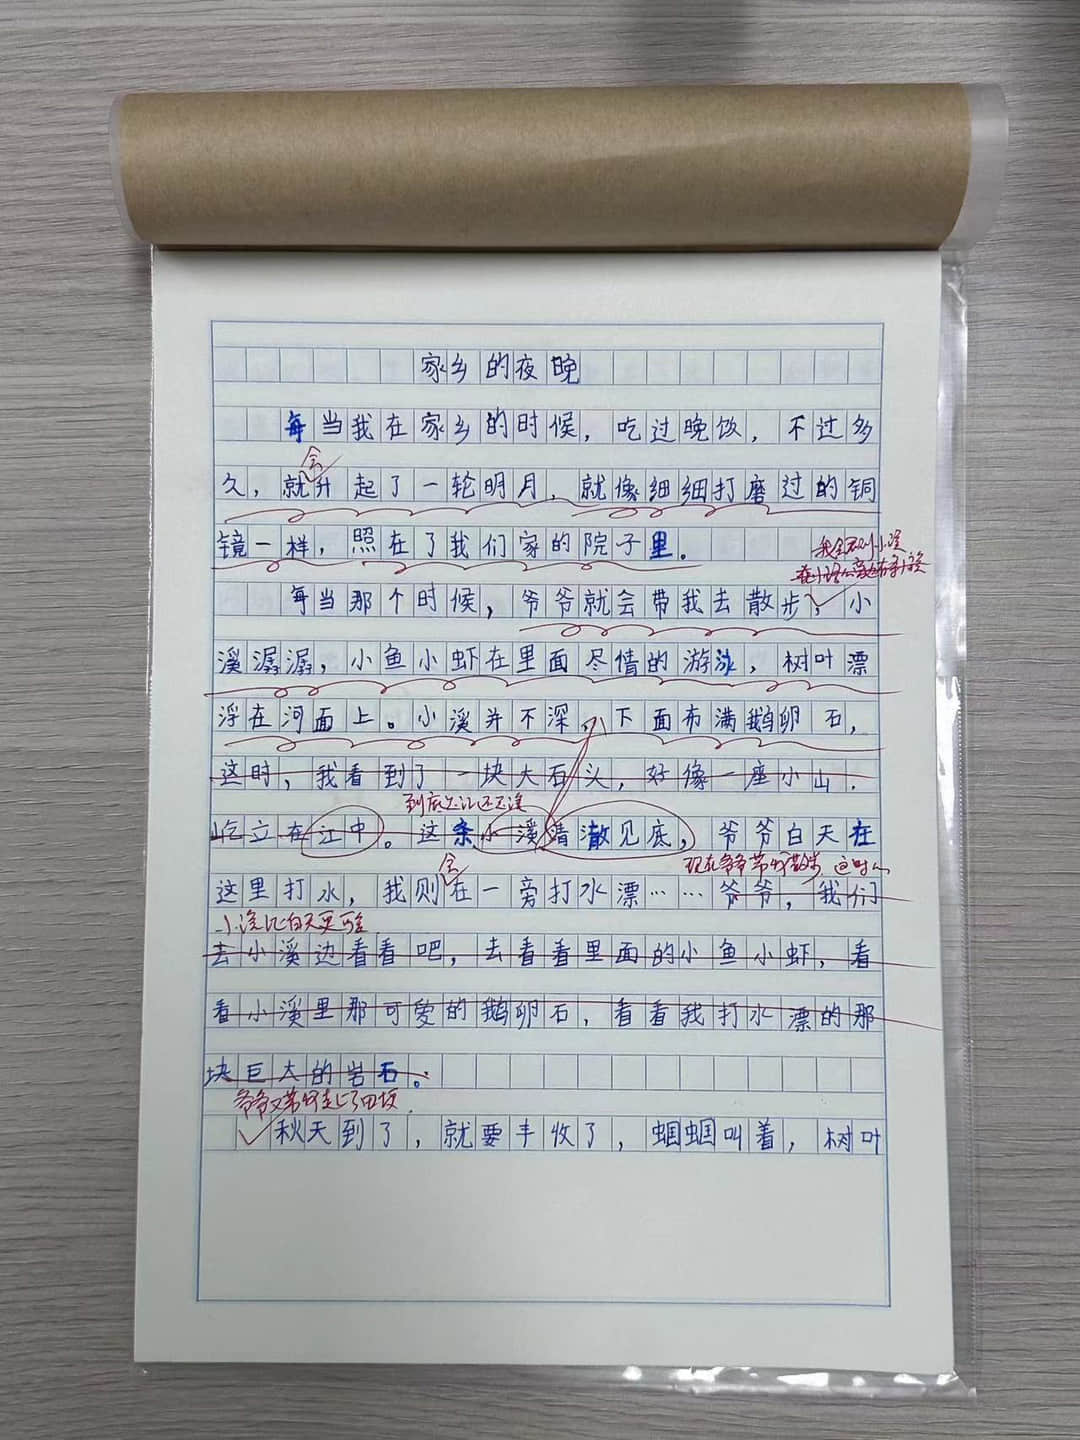 家乡的夜晚
每当我在家乡的时候，吃过晚饭，不过多
会
久，就升起了一轮明月，就像细细打磨过的铜
镜一样，照在了我们家的院子里。
我会不小溪
每当那个时候，爷爷就会带我去散步，小
溪潺潺，小鱼小虾在里面尽情的游泳，树叶漂
浮在河面上。小溪并不深，下面布满鹅卵石，
这时，我看到了一块大石头，好像一座小山.
到底是江还是溪
屹立在江中。这条小溪清澈见底，爷爷白天在
会
现在爷爷带你散步 这时
这里打水，我则在一旁打水漂……爷爷，我们
小溪比白天更
去小溪边看看吧，去看看里面的小鱼小虾，看
看小溪里那可爱的鹅卵石，看看我打水漂的那
块巨大的岩石。
爷爷又带你走上了田埂
秋天到了，就要丰收了，蝈蝈叫着，树叶